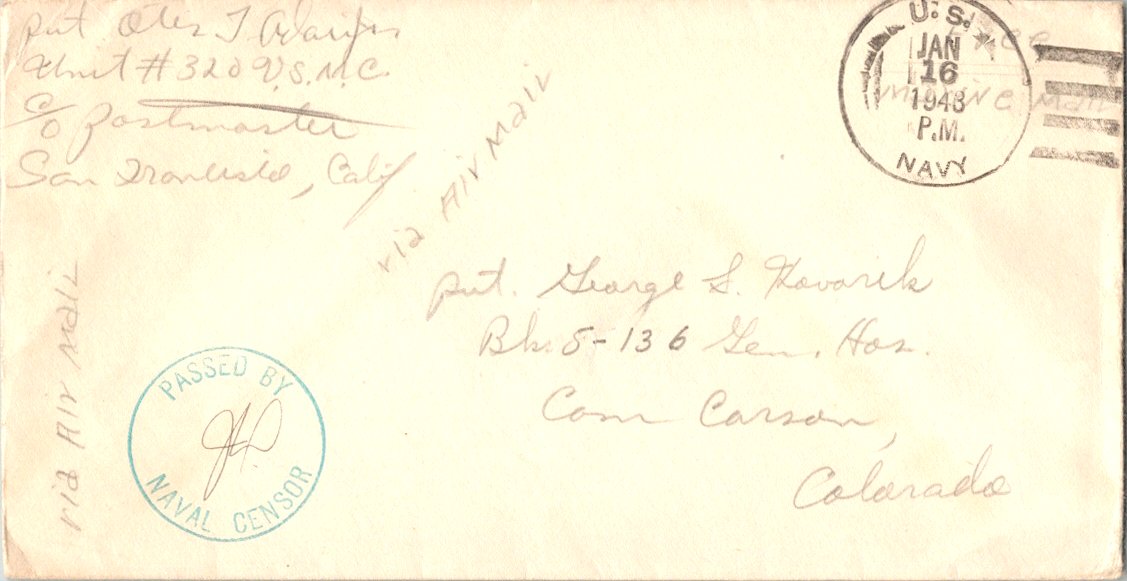 Pvt. Otes T
Unit #320 U.S.M.C.
c/o Postmaster
San Francisco, Calif
via Air Mail
U.S.
JAN
16
1943
P.M.
NAVY
Free
Marine Mail
Pvt. George S. Kovarik
Bk. S-136 Gen. Hos.
Cam Carson,
Colorado
via Air Mail
PASSED BY
NAVAL CENSOR